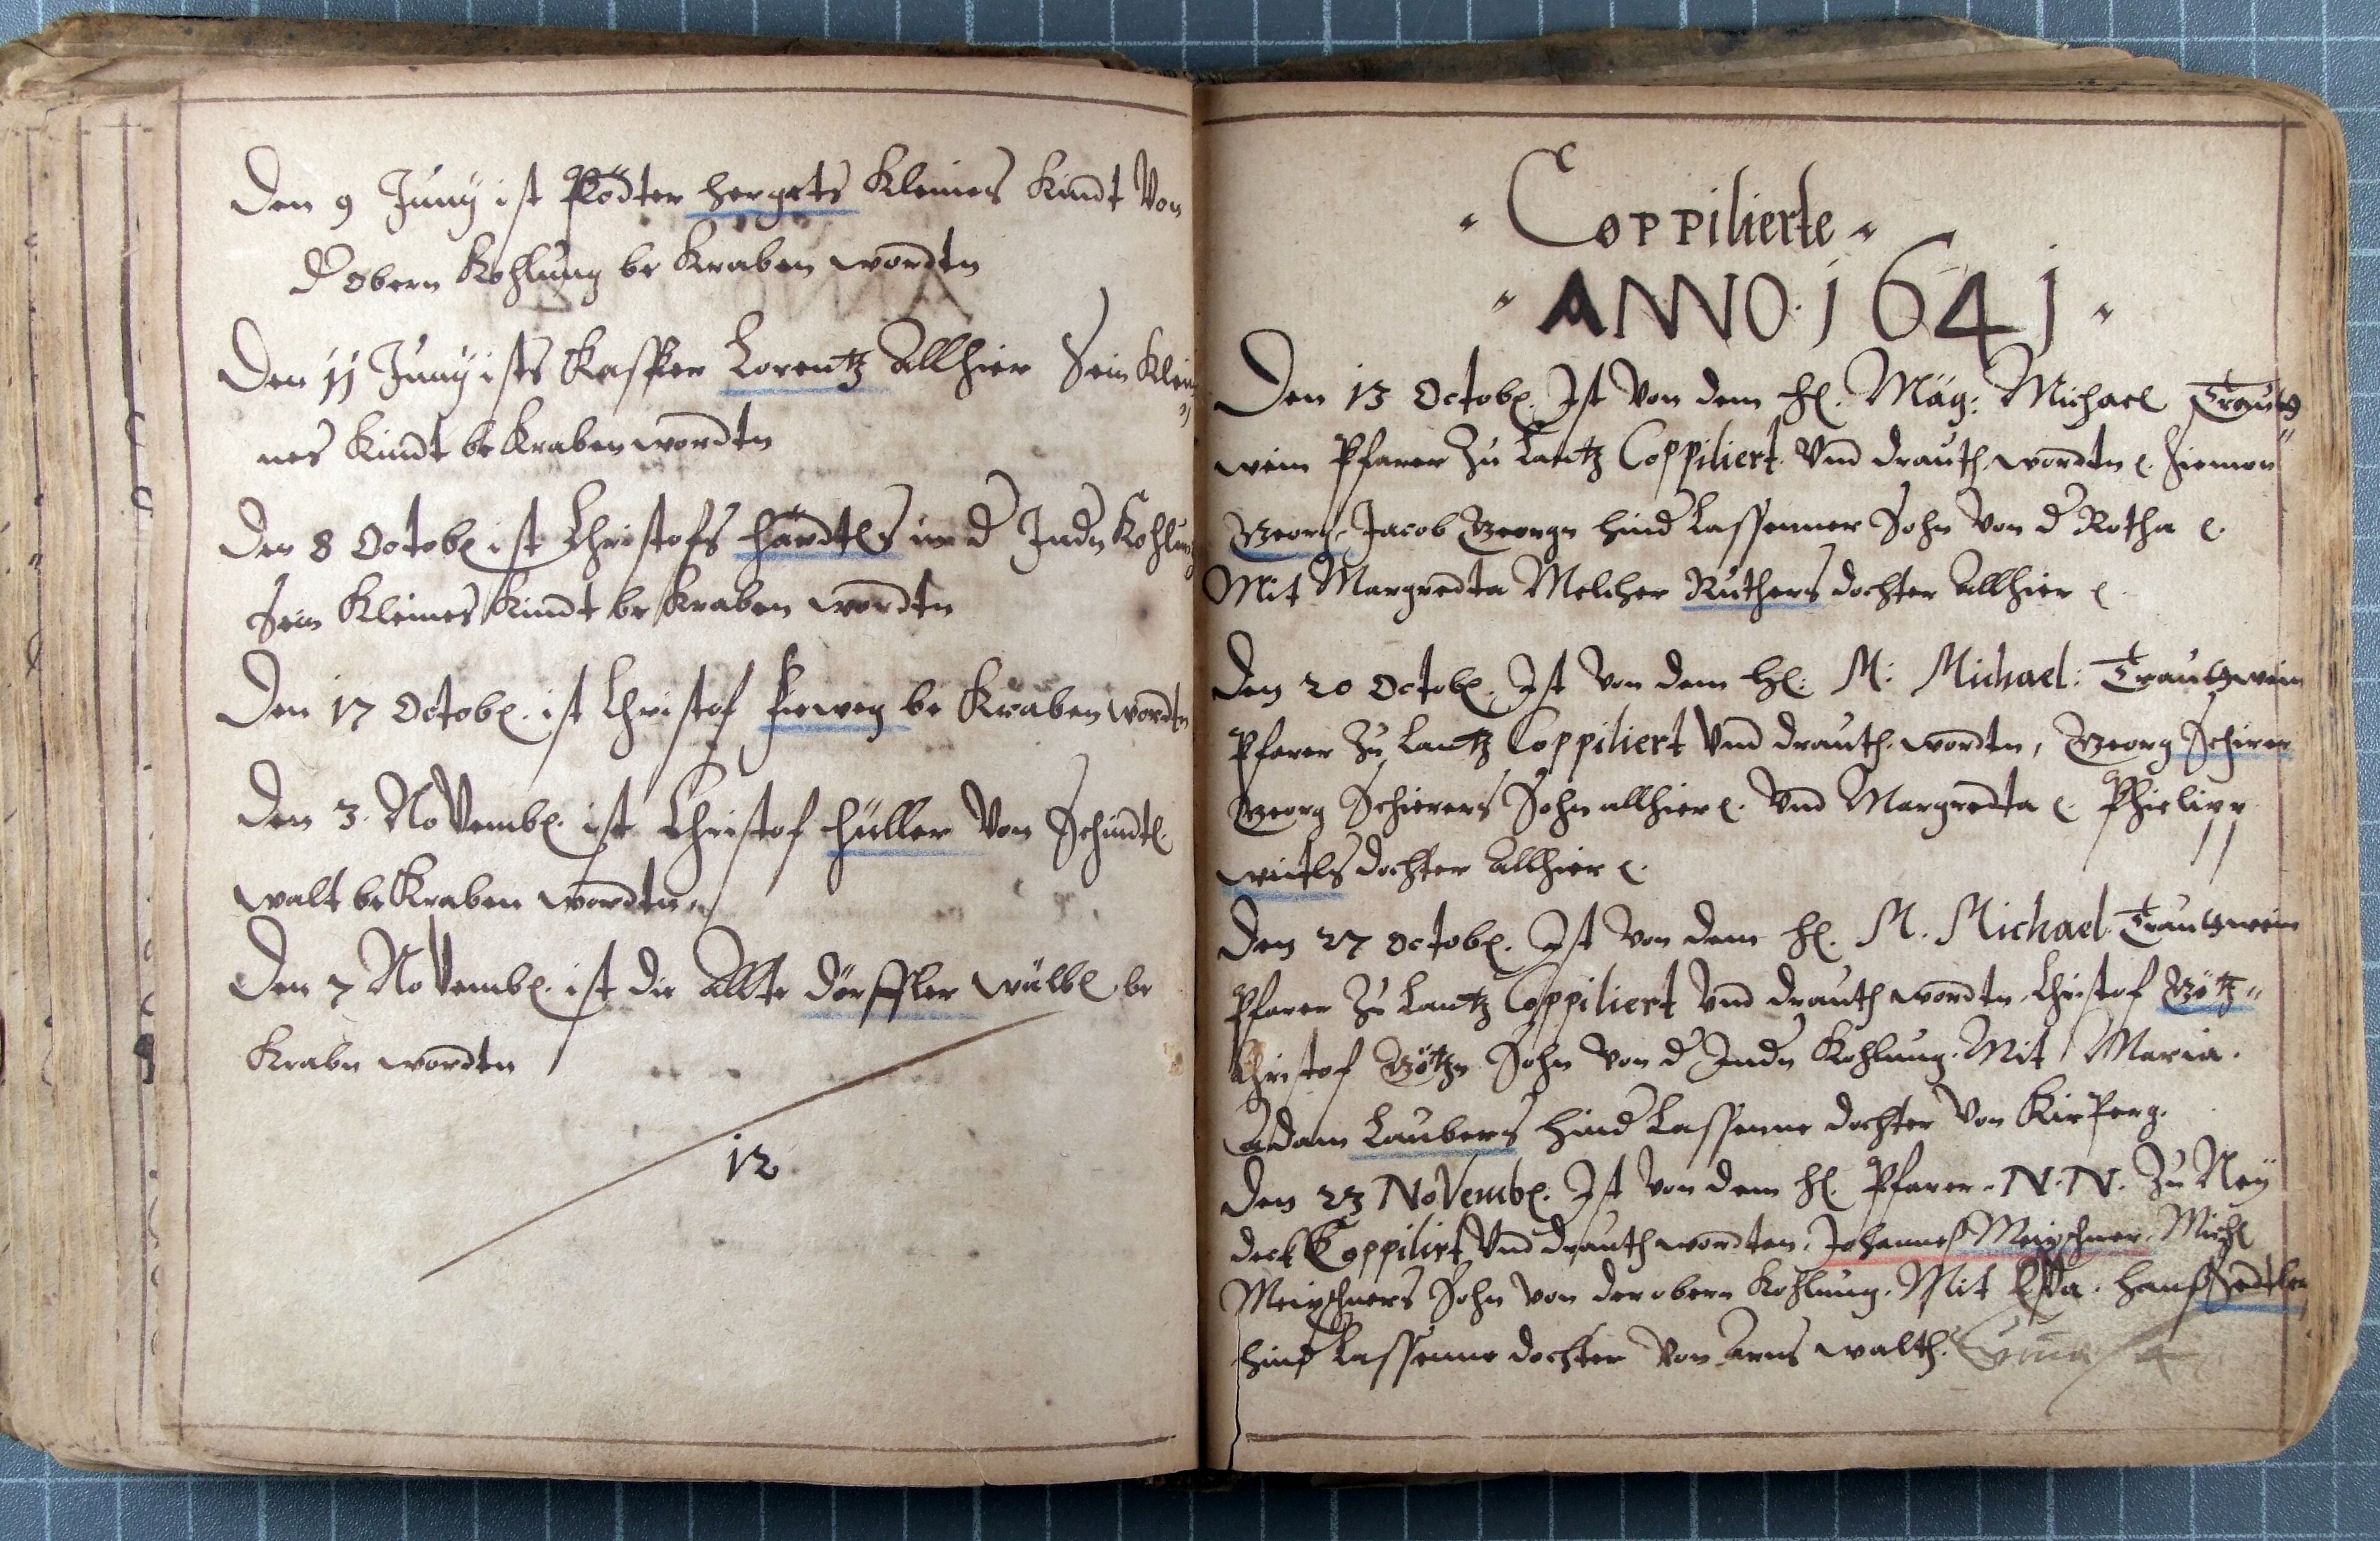 Den 9 Juny ist Pödter hergets Kleines Kindt Von
d obern Kohlung be Kraben wordtn
Den 11 Juny ists Kasper Lorentz Allhier Sein Klei
nes Kindt be Kraben wordtn
Den 8 Octob ist Christofs härdtls in d Indn Kohlung
Sein Kleines Kindt be Kraben wordtn
Den 17 Octob. ist Christof be Kraben wordtn
Den 3. Novemb. ist Christof hüller Von Schindl
walt be Kraben wordtn
Den 7 Novemb. ist die Allte dörffler be
Krabn wordtn
12
Coppilierte
ANNO 1641
Den 13 Octob. Ist Von dem H. Mäg: Michael Trautz
wein Pfarer Zu Lantz Coppiliert Vnd drauth wordtn
Georg Jacob Georgn hind Lassenner Sohn Von d Rotha
Mit Margredta Melcher Ruthers dochter Allhier
Den 20 Octob. Ist Von dem H: M: Michael: Trautzwein
Pfarer Zu Lantz Coppiliert Vnd drauth wordtn, Georg Schirer
Georg Schierers Sohn allhier Vnd Margredta Phielipp
dochter Allhier
Den 27 Octob. Ist Von dem H. M. Michael Trautzwein
Pfarer Zu Lantz Coppiliert Vnd drauth wordtn Christof Götz
Christof Götzn Sohn Von d Indn Kohlung. Mit Maria.
Adam Laubers hind Lassenne dochter Von Kirperg.
Den 23 Novemb. Ist Von dem H. Pfarer N. N. Zu Ney
deck Coppilirt Vnd drauth wordten, Johannes Meischner Michl
Meischners Sohn Von der obern Kohlung. Mit Efa. hans
hind Lassenne dochter Von Arns walth.